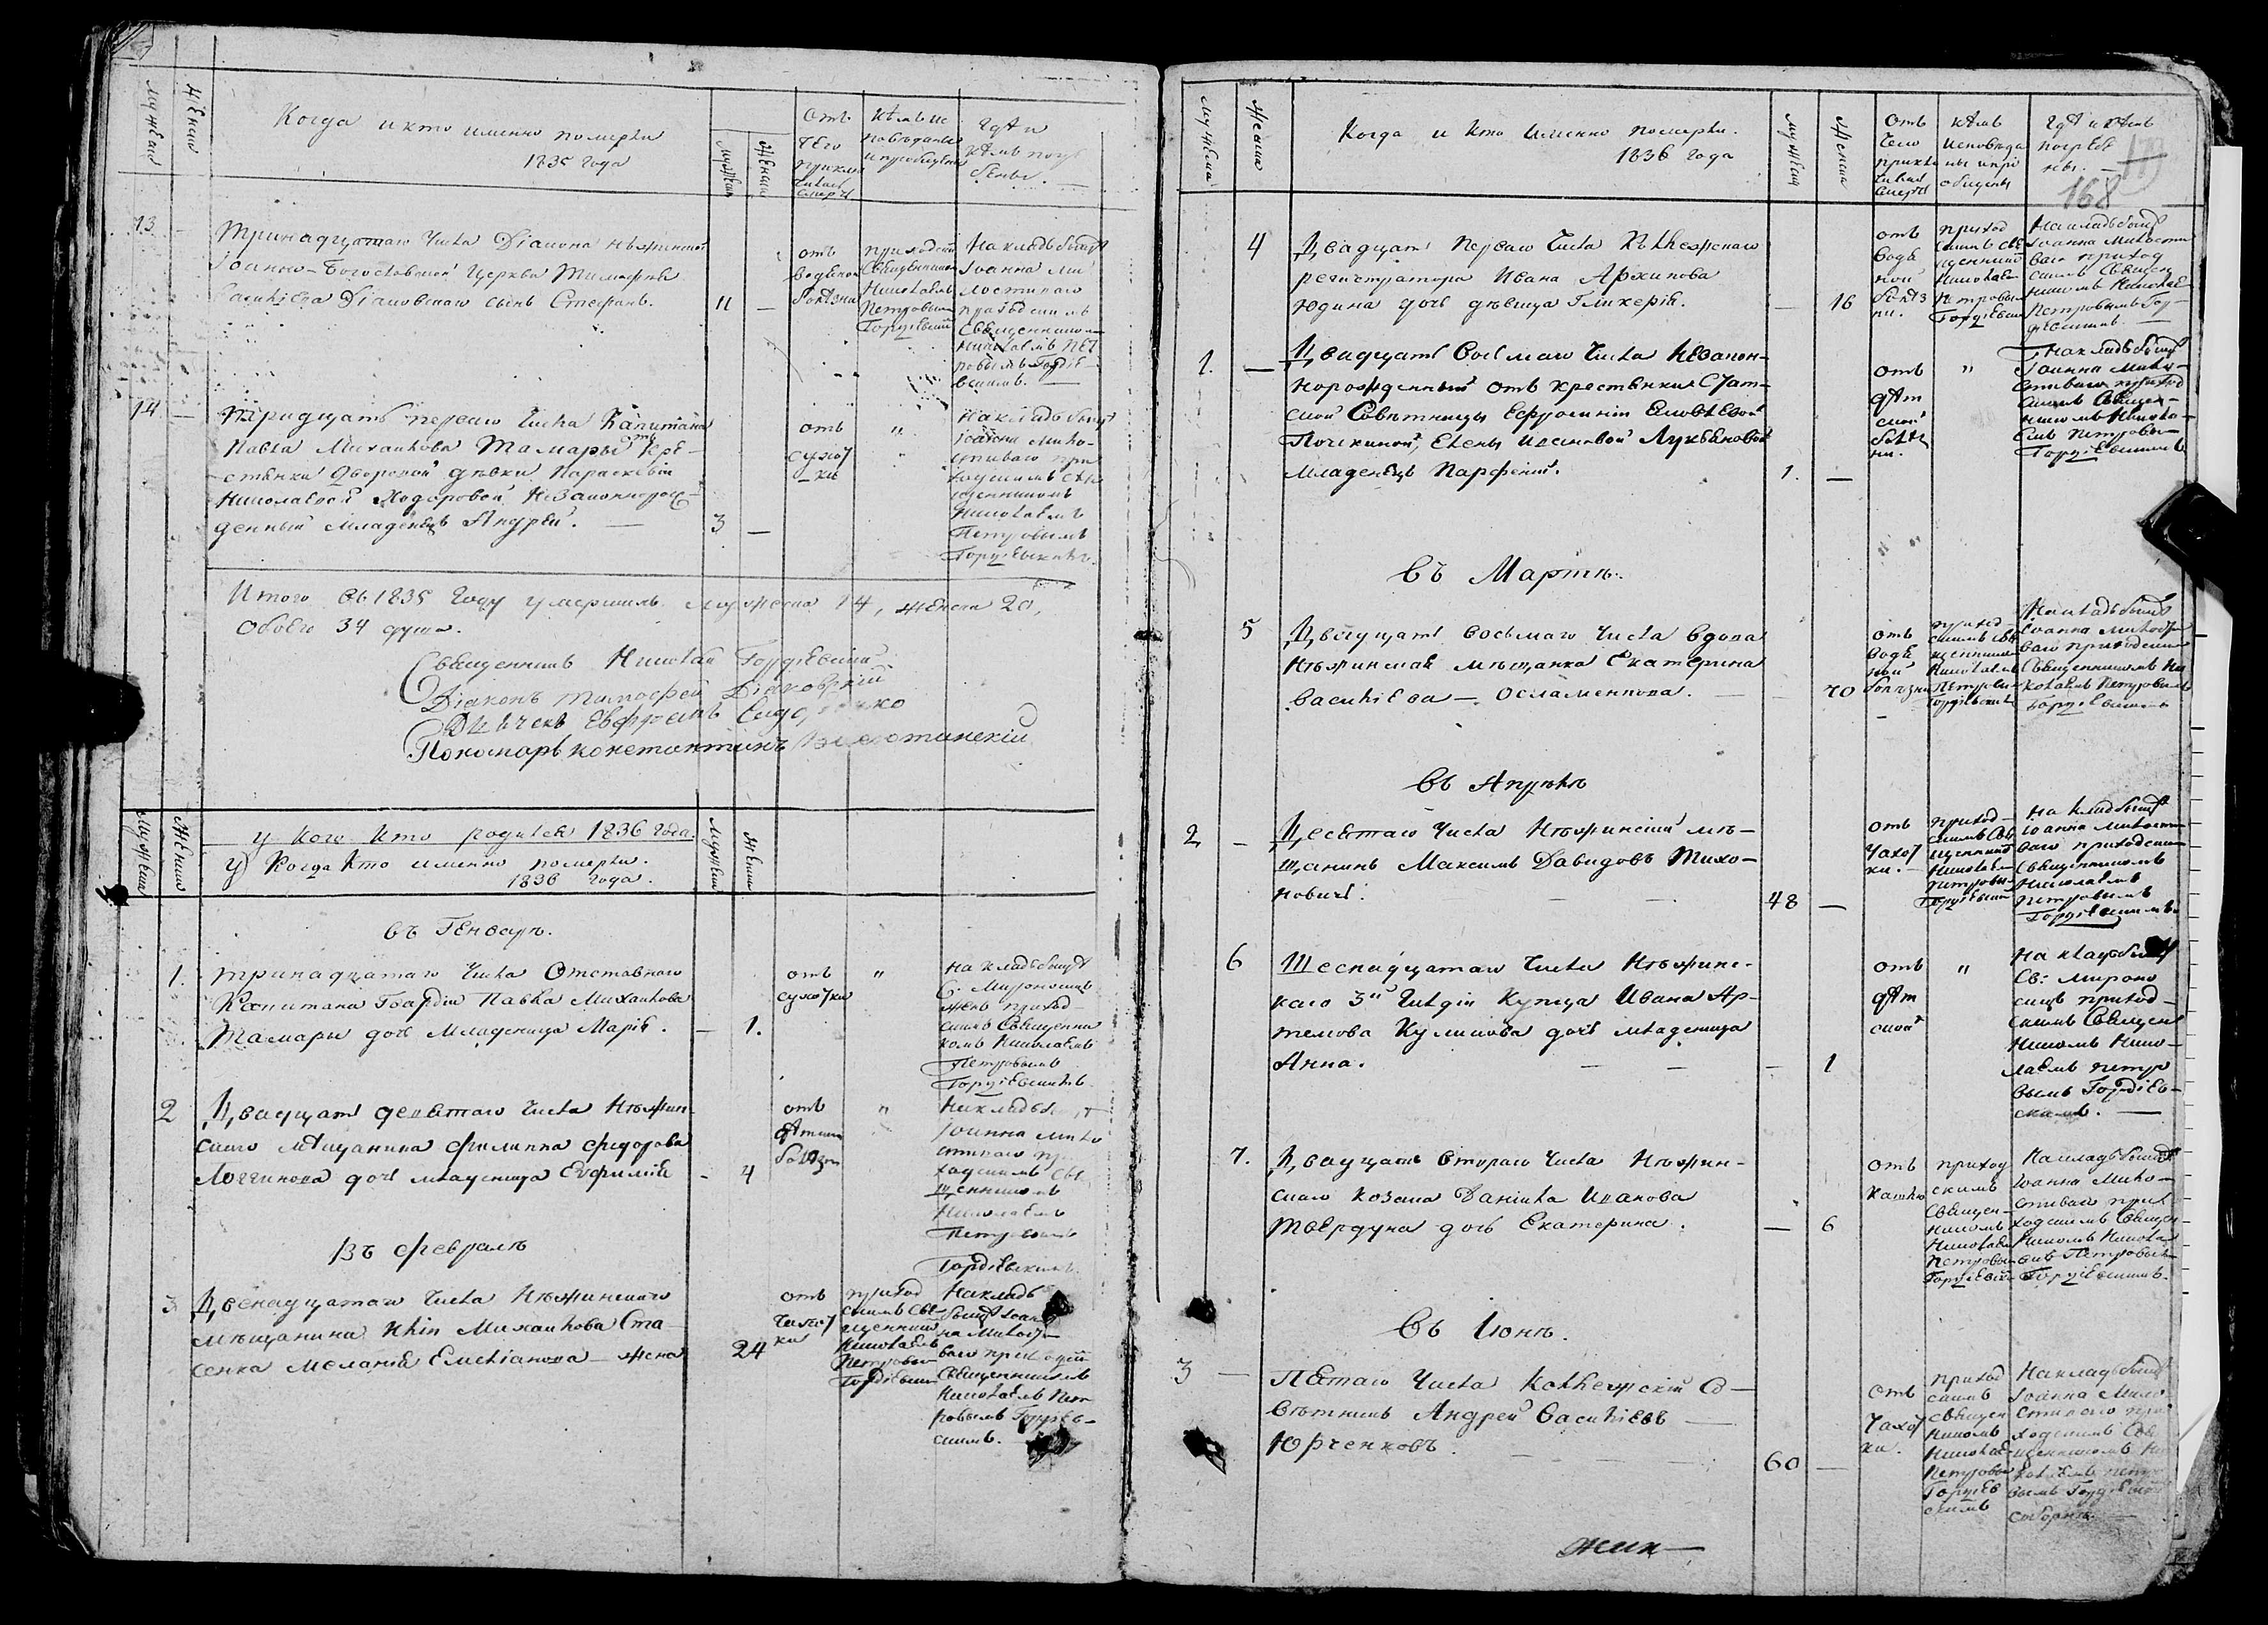 Мужеска
Женска
Когда и кто именно померли
1835 года
Мужеска
Женска
отъ
чего
приклю
чилась
смерть
кѣмъ ис
повѣданы
и приобщены
гдѣ и
кѣмъ погре
бены.
13 —
Тринадцатаго числа Діакона нѣжинской
Іоанно-Богословской Церкви Тимофея
Василіева Діаковскаго сынъ Стефанъ.
11 —
отъ
водяной
болѣзни
приходскимъ
Священникомъ
Николаемъ
Петровымъ
Гордіевскимъ
На кладбищѣ
Іоанна Ми
лостиваго
приходскимъ
Священникомъ
Николаемъ Пет
ровымъ Гордіе
вскимъ. —
14 —
Тридцать перваго числа Капитана
Павла Михаилова Тамары кре-
стянки дворовой дѣвки Параскевіи
Николаевой Ходоровой незаконнорож-
денный младенецъ Андрей. —
3 —
отъ
сухот
ки
"
На кладбищѣ
Іоанна Мило-
стиваго при
ходскимъ свя
щенникомъ
Николаемъ
Петровымъ
Гордіевскимъ.
Итого въ 1835 году умершихъ мужеска 14, женска 20,
обоего 34 души.
Священникъ Николай Гордіевскій
Діаконъ Тимофей Діаковскій
Дьячекъ Евфимъ
Пономарь Константинъ
Мужеска
Женска
у Кого Кто родился 1836 года.
у) Когда Кто именно померли.
1836 года.
Мужеска
Женска
въ Генварѣ.
1.
тринадцатаго числа Отставнаго
Капитана Гвардіи Павла Михаилова
Тамары дочь младеница Марія.
— 1.
отъ
сухотки
"
на кладбищѣ
С. Мироносицъ
женъ приход-
скимъ Священни
комъ Николаемъ
Петровымъ
Гордіевскимъ
2
Двадцать девятаго числа Нѣжин-
скаго мѣщанина Филиппа Федорова
Логгинова дочь младеница Евфимія
- 4
отъ
дѣтской
болѣзни
"
На кладбищѣ
Іоанна Мило
стиваго при
ходскимъ Свя
щенникомъ
Николаемъ
Петровымъ
Гордіевскимъ.
Въ Февралѣ
3
Двенадцатаго числа Нѣжинскаго
мѣщанина Иліи Михаилова Ста
сенка Меланія Емеліанова — жена
24
отъ
чахот
ки
приход
скимъ Свя
щенник
Николаемъ
Петровым
Гордіевским
На клад
бищѣ Іоан
на Милости
ваго приходск
Священникомъ
Николаемъ Пет
ровымъ Гордіев-
скимъ. —
Мужеска
Женска
Когда и Кто Именно померли.
1836 года
мужеска
Женска
отъ
Чего
приклю
чилась
Смерть
кѣмъ
исповѣда
ны и прі
общены
гдѣ и кѣмъ
погребе
ны. —
168
4
Двадцать перваго числа Коллежскаго
регистратора Ивана Архипова
Юдина дочь дѣвица Гликерія.
— 16
отъ
водя
ной
болѣз
ни.
приход
скимъ свя
щенникъ
Николаем
Петровым
Гордіевским
На кладбищѣ
Іоанна Милости
ваго приход
скимъ Священ
никомъ Николаем
Петровымъ Гор-
діевскимъ. —
1. —
Двадцать Восьмаго числа Незакон-
норожденный отъ крестянки Стат-
ской Совѣтницы Ефросиніи Яковлевой
Почекиной, Елены Ивановой Лукьяновой
Младенецъ Парфеній.
1. —
отъ
дѣт
ской
болѣз
ни.
"
На кладбищѣ
Іоанна Мило-
стиваго приход
скимъ Священ-
никомъ Никола-
емъ Петровы-
Гордіевскимъ
Въ Мартѣ.
5
Двадцать восьмаго числа вдова
Нѣжинская мѣщанка Екатерина
Василіева — Осламенкова. —
— 70
отъ
водя
ной
болѣзни
приход-
скимъ свя
щенником
Николаемъ
Петровы-
Гордіевскимъ
На кладбищѣ
Іоанна Милости
ваго приходским
Священникомъ Ни
колаемъ Петровымъ
Гордіевскимъ
Въ Апрѣлѣ
2 —
Десятаго числа Нѣжинскій мѣ-
щанинъ Максимъ Давидовъ Тихо-
новичь.
48 —
отъ
чахот
ки. —
приход-
скимъ Свя
щенником
Николаем
Петровым
Гордіевским
На кладбищѣ
Іоанна Милости
ваго приходским
Священникомъ
Николаемъ
Петровымъ
Гордіевскимъ.
6
Шеснадцатаго числа Нѣжинс-
каго 3й Гилдіи Купца Ивана Ар-
темова Куликова дочь младеница
Анна. — —
— 1
отъ
дѣт
ской
"
На кладбищѣ
Св: Мироно
сицъ приход-
скимъ Священ
никомъ Нико-
лаемъ Петро
вымъ Гордіев-
скимъ. —
7.
Двадцать втораго числа Нѣжин-
скаго козака Даніила Иванова
Твердуна дочь Екатерина.
— 6
отъ
кашлю
приход
скимъ
Священ-
никомъ
Николаем
Петровым
Гордіевски
На кладбищѣ
Іоанна Мило-
стиваго при
ходскимъ Священ-
никомъ Никола
емъ Петровым
Гордіевскимъ.
Въ Іюнѣ.
3 —
Пятаго числа Коллежскій Со-
вѣтникъ Андрей Василіевъ —
Юрченковъ.
60 —
отъ
чахот
ки.
приход
скимъ
священ
никомъ
Николае
Петровы
Гордіев
скимъ
На кладбищѣ
Іоанна Мило
стиваго при
ходскимъ Свя
щенникомъ Ни
колаемъ Петро
вымъ Гордіевским
соборнѣ.